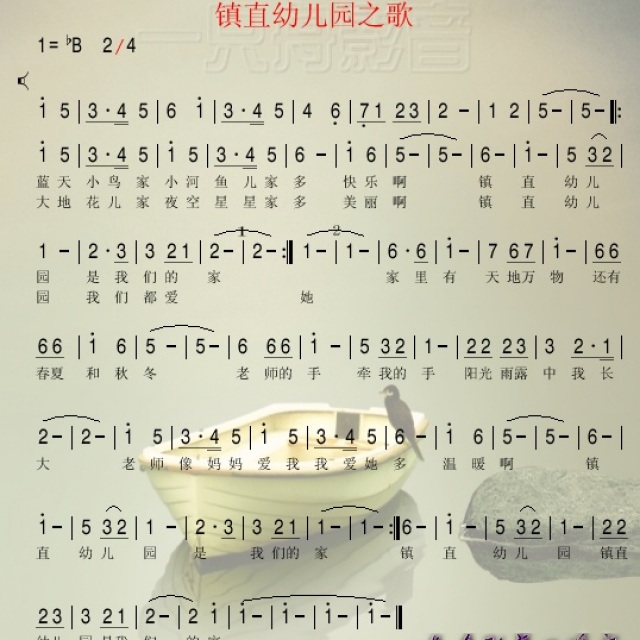 镇直幼儿园之歌
一只舟影音
1=♭B 2/4
i 5|3·4 5|6 i|3·4 5|4 6|71 23|2 -|1 2|5-|5-:
i 5|3·4 5|i 5|3·4 5|6 -|i 6|5-|5-|6-|i-|5 32|
蓝天小鸟家小河鱼儿家多 快乐啊 镇直幼儿
大地花儿家夜空星星家多 美丽啊 镇直幼儿
1 2
1 -|2·3|3 21|2-|2-:‖1-|1-|6·6|i-|7 67|1-|66
园 是我们的家 家里有天地万物 还有
园 我们都爱 她
66|i 6|5-|5-|6 66|i -|5 32|1-|22 23|3 2·1|
春夏和秋冬 老师的手牵我的手 阳光雨露中我长
2-|2-|i 5|3·4 5|i 5|3·4 5|6-|i 6|5-|5-|6-|
大 老师像妈妈爱我我爱她多 温暖啊 镇
i-|5 32|1 -|2·3|3 21|1-|1-:‖6-|i-|5 32|1-|22
直幼儿园 是我们的家 镇直幼儿园 镇直
23|3 21|2-|2 i|i-|i-|i-|i-‖